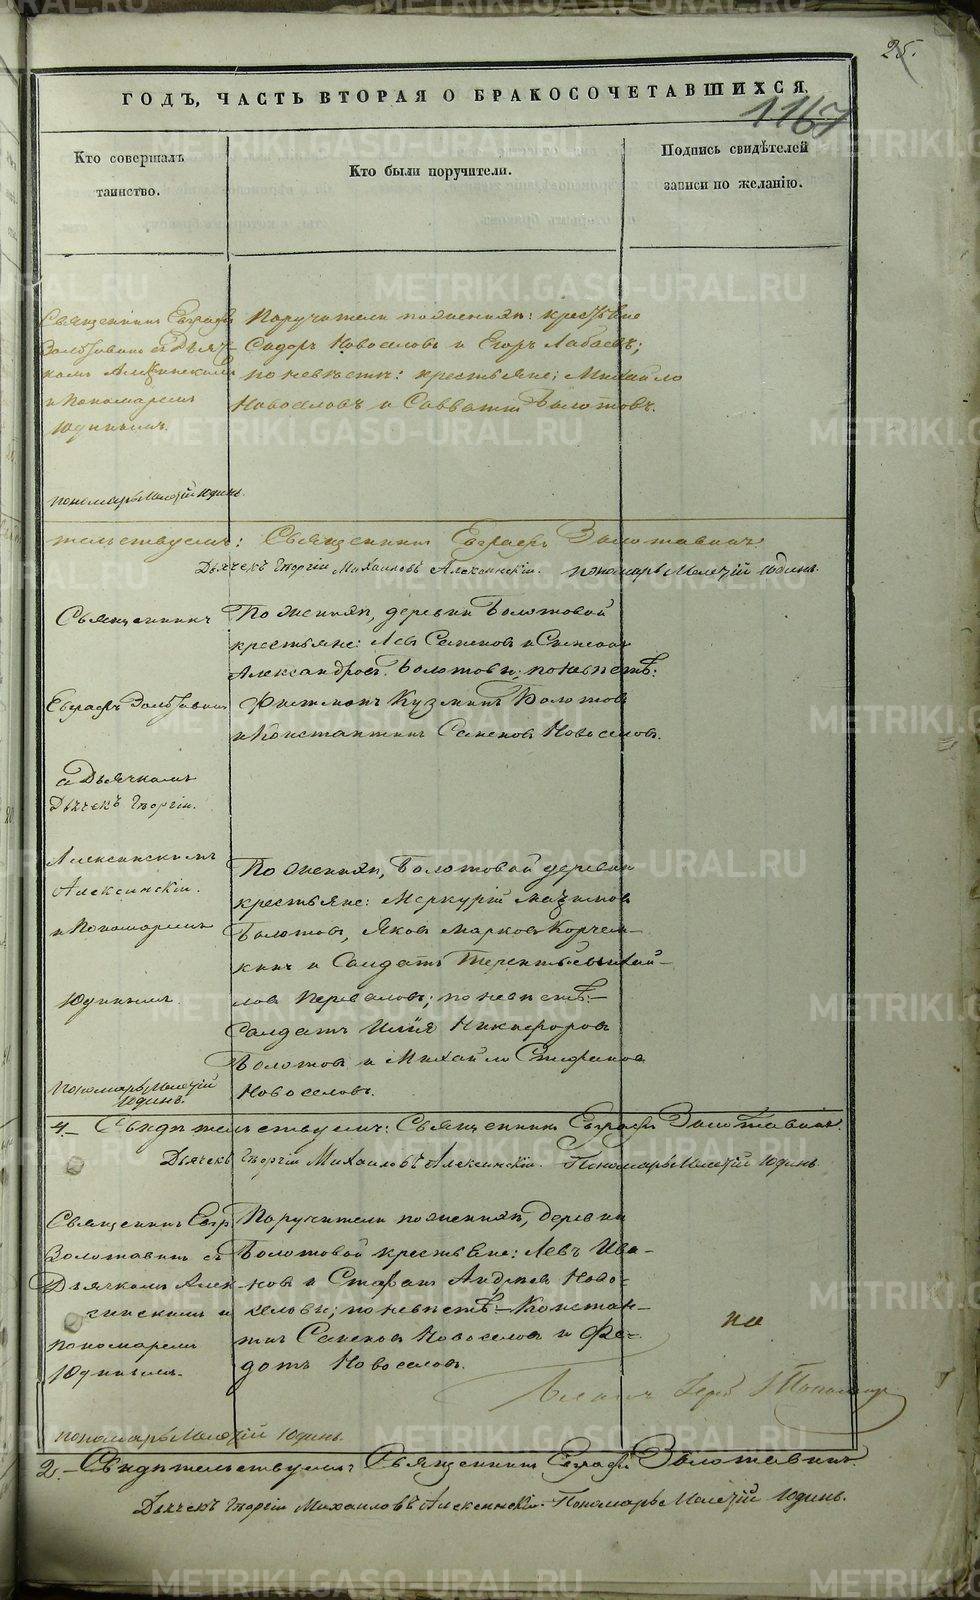 25.
ГОДЪ, ЧАСТЬ ВТОРАЯ О БРАКОСОЧЕТАВШИХСЯ,
1167
Кто совершалъ таинство.
Кто были поручители.
Подпись свидѣтелей записи по желанію.
Священникъ Евграфъ
съ Дьяч-
комъ Алексинскимъ
и Пономаремъ
Юдинымъ.
Поручители по женихѣ: крестьяне
Сидоръ Новоселовъ и Егоръ
по невѣстѣ: крестьяне: Михайло
Новоселовъ и Савватій Болотовъ.
Пономарь Юдинъ.
тельствуемъ: Священникъ Евграфъ Золотавинъ
Дьячекъ Георгій Михаиловъ Алексинскій. Пономарь Юдинъ.
Священникъ
Евграфъ Золотавинъ
съ Дьячкомъ
Дьячекъ Георгій.
Алексинскимъ
Алексинскій.
и Пономаремъ
Юдинымъ
Пономарь
Юдинъ.
По женихѣ, деревни Болотовой
крестьяне: Левъ Семеновъ и Симеонъ
Александровъ Болотовы; по невѣстѣ:
Филимонъ Кузминъ Болотовъ
и Константинъ Семеновъ Новоселовъ.
По женихѣ, Болотовой деревни
крестьяне: Меркурій
Болотовъ, Яковъ Марковъ Корчем-
кинъ и Солдатъ Терентій Михай-
ловъ Перваловъ; по невѣстѣ:
Солдатъ Илія Никифоровъ
Болотовъ и Михайло Стефановъ
Новоселовъ.
4.- Свидѣтельствуемъ: Священникъ Евграфъ Золотавинъ.
Дьячекъ Георгій Михаиловъ Алексинскій. Пономарь Юдинъ.
Священникъ Евгр.
Золотавинъ съ
Дьячкомъ Алек-
синскимъ и
пономаремъ
Юдинымъ.
Поручители по женихѣ, деревни
Болотовой крестьяне: Левъ Ива-
новъ и Стефанъ Андреевъ Ново-
селовы; по невѣстѣ Констан-
тинъ Семеновъ Новоселовъ и Фе-
дотъ Новоселовъ.
Пономарь Юдинъ.
2.- Свидѣтельствуемъ: Священникъ Евграфъ Золотавинъ.
Дьячекъ Георгій Михаиловъ Алексинскій. Пономарь Юдинъ.
METRIKI.GASO-URAL.RU